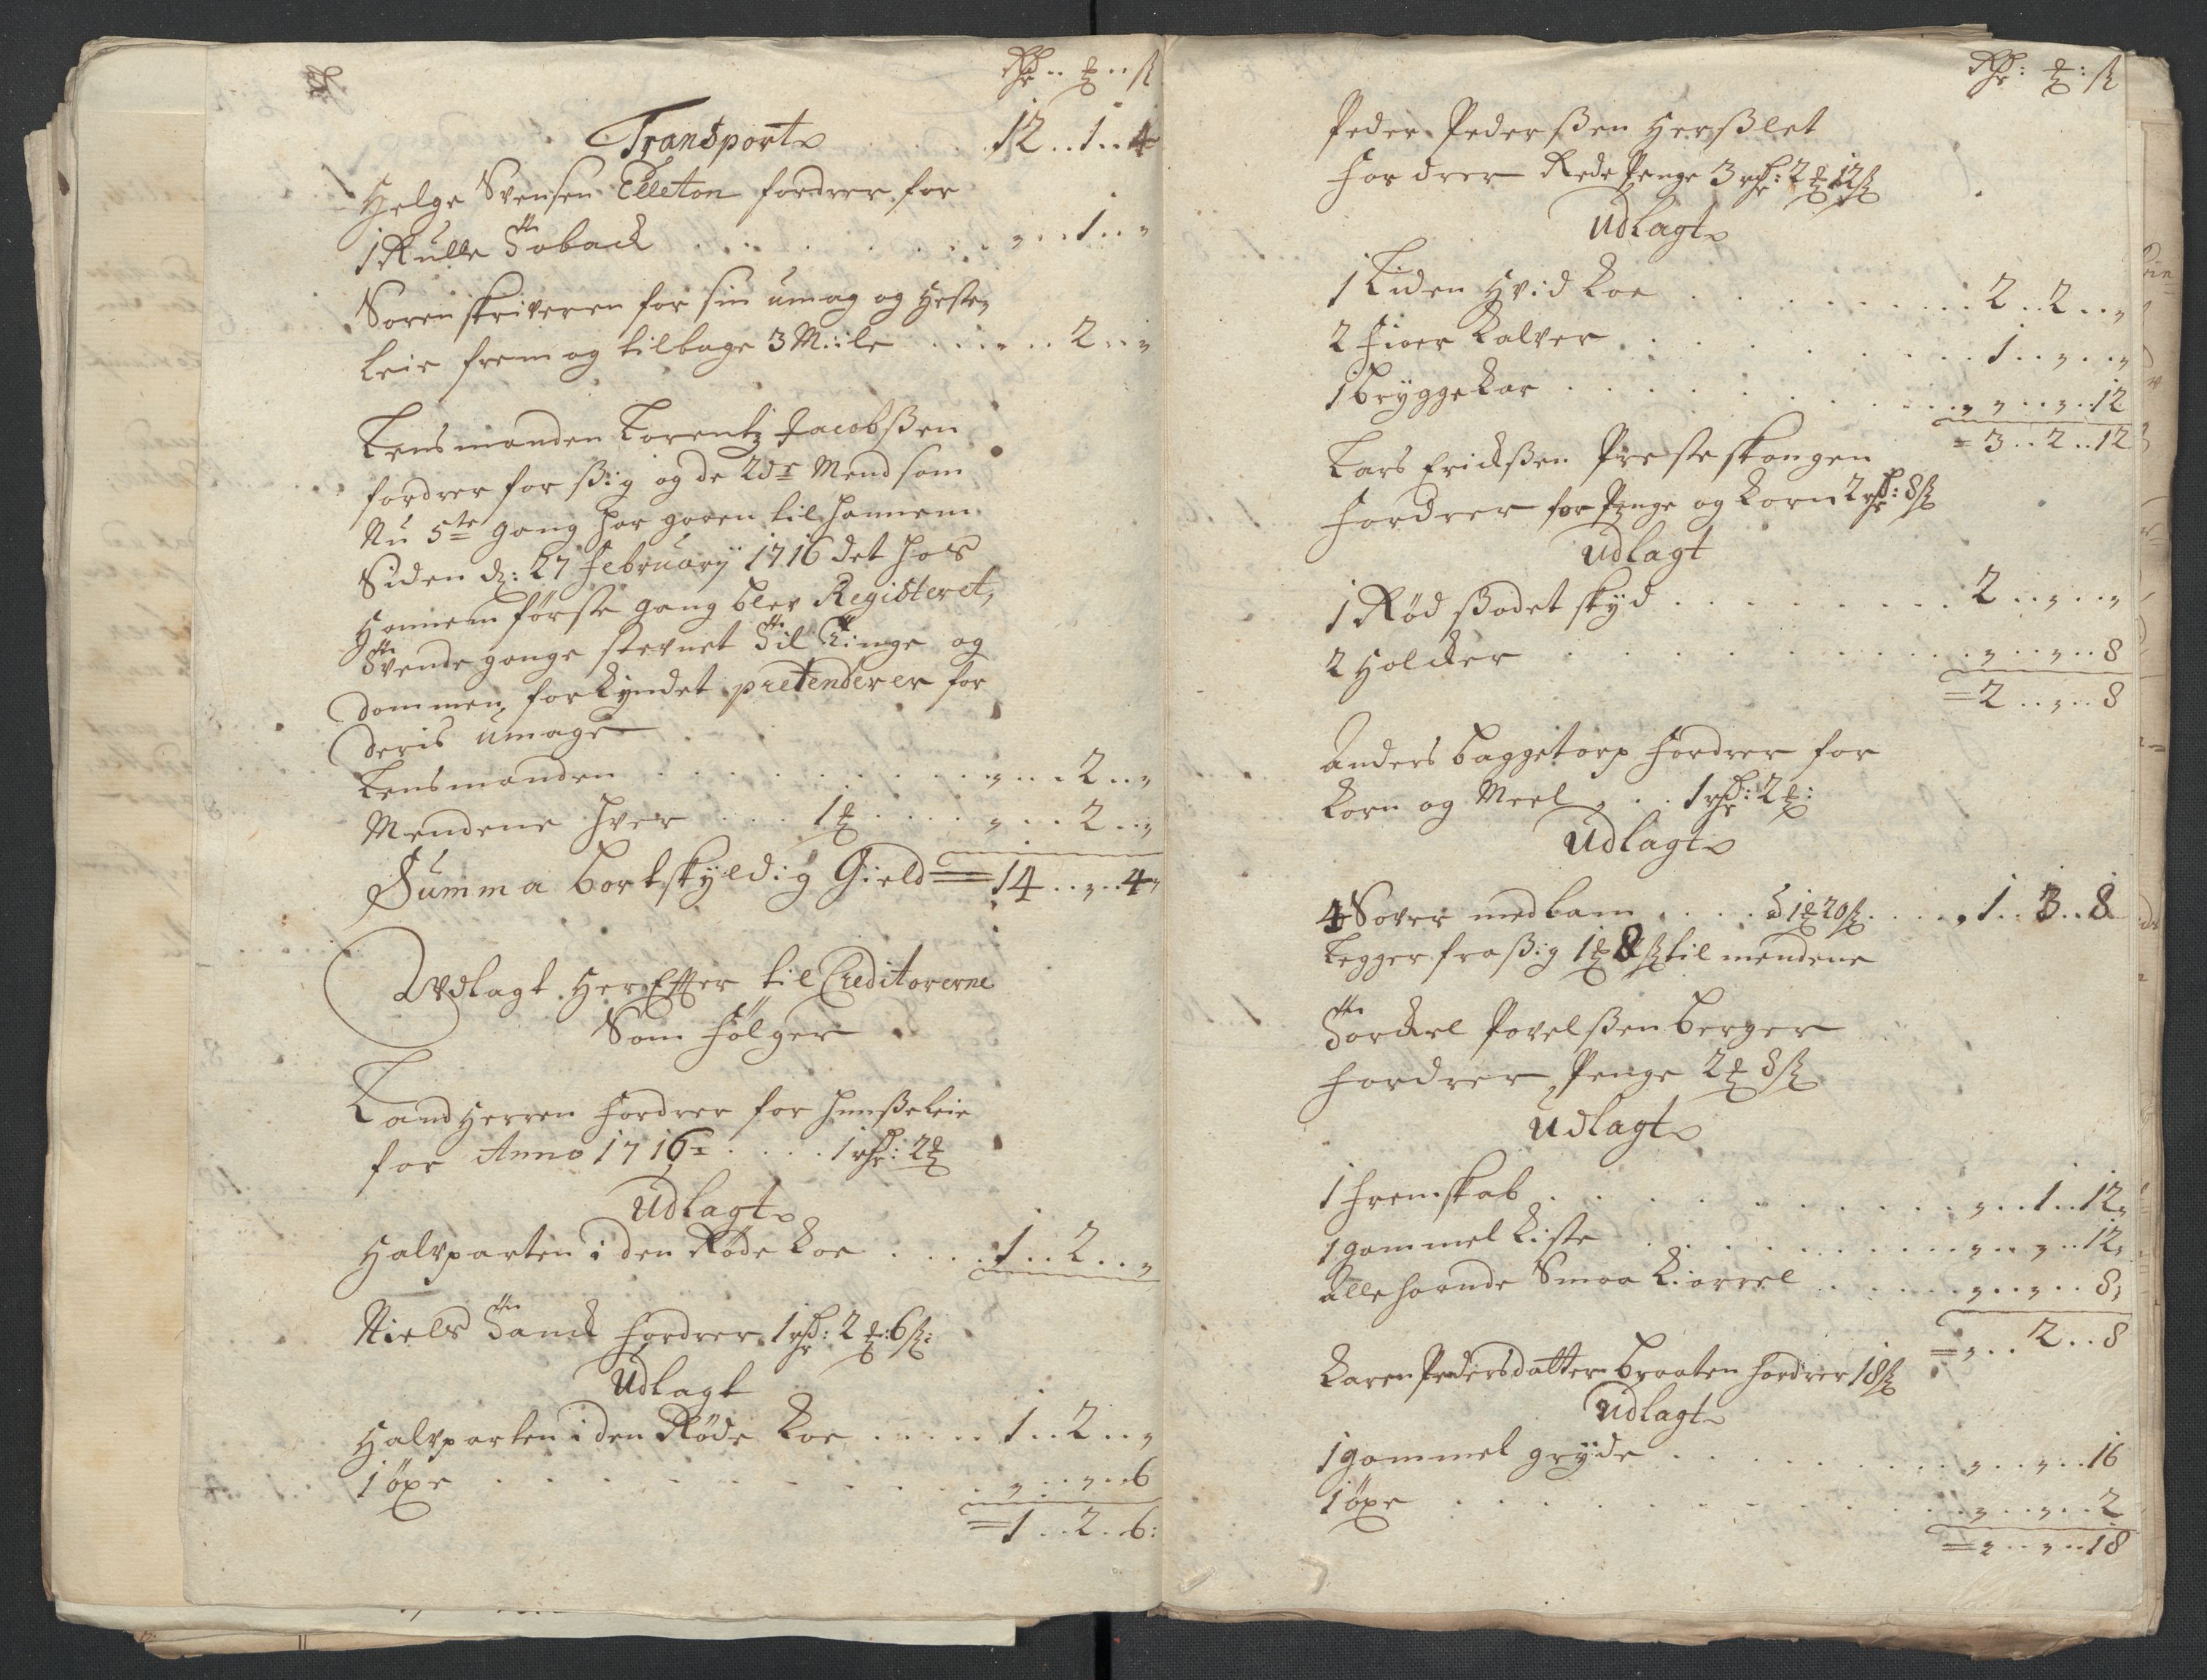 Rdr .. ℥ .. ß
Transport . . . 12 .. 1 .. 4
Helge Svensen Elleton fordrer for
1 Rulle Toback . . . . . . „ .. 1 .. „
Sorenskriveren for sin umag og Heste,
leie frem og tilbage 3 Miile . . . „ .. 2 .. „
Lensmanden Lorentz Jacobßen
fordrer for ßig og de 2de Mend som
Nu 5te gang har gaaen til hannem
Siden d: 27 Februarij 1716 det hos
Hannem förste gang blev Registeret,
Tvende gange stevnet Til Tinge og
dommen forkyndet pretenderer for
deris umage
Lensmanden . . . . . . „ .. 2 .. „
Mendene hver . . . 1 ℥ . . . „ .. 2 .. „
Summa bortskyldig Gield = 14 .. „ .. 4
Udlagt Her Efter til Creditorerne
Som Fölger
Landherren Fordrer for hußeleie
for Anno 1716 . . . . 1 rdr: 2 ℥
Udlagt
Halvparten i den Röde Koe . . . . 1 .. 2 .. „
Niels Tanck Fordrer 1 rdr: 2 ℥: 6 ß:
Udlagt
Halvparten i den Röde Koe . . . . 1 .. 2 .. „
1 öxe . . . . . . „ .. „ .. 6
= 1 .. 2 .. 6:
Rdr: ℥: ß
Peder Pederßen Herßlet
Fordrer Rede Penge 3 rdr: 2 ℥ 12 ß
Udlagt
1 Liden Hvid Koe . . . . . . 2 .. 2 .. „
2 Fioer Kalver . . . . . . 1 .. „ .. „
1 bryggekar . . . . . . „ .. „ .. 12
= 3 .. 2 .. 12
Lars Erichßen Presteskougen
Fordrer for Penge og Korn 2 rdr: 8 ß
Udlagt
1 Röd ßadet skyd . . . . . . 2 .. „ .. „
2 Holcker . . . . . . „ .. „ .. 8
= 2 .. „ .. 8
Anders baggetorp Fordrer for
Korn og Meel . . . 1 rdr: 2 ℥:
Udlagt
4 Sover med lam . . . á 1 ℥ 20 ß . . . 1 .. 3 .. 8
Legger fra ßig 1 ℥ 8 ß til mendene
Torckel Povelßen berger
Fordrer Penge 2 ℥ 8 ß
Udlagt
1 Fremskab . . . . . . „ .. 1 .. 12
1 gammel Kiste . . . . . . „ .. „ .. 12
Allehaande Smaa Kiørrel . . . . „ .. „ .. 8
= „ .. 2 .. 8
Karen Pedersdatter braaten Fordrer 18 ß
Udlagt
1 gammel gryde . . . . . . „ .. „ .. 16
1 öxe . . . . . . „ .. „ .. 2
= „ .. „ .. 18